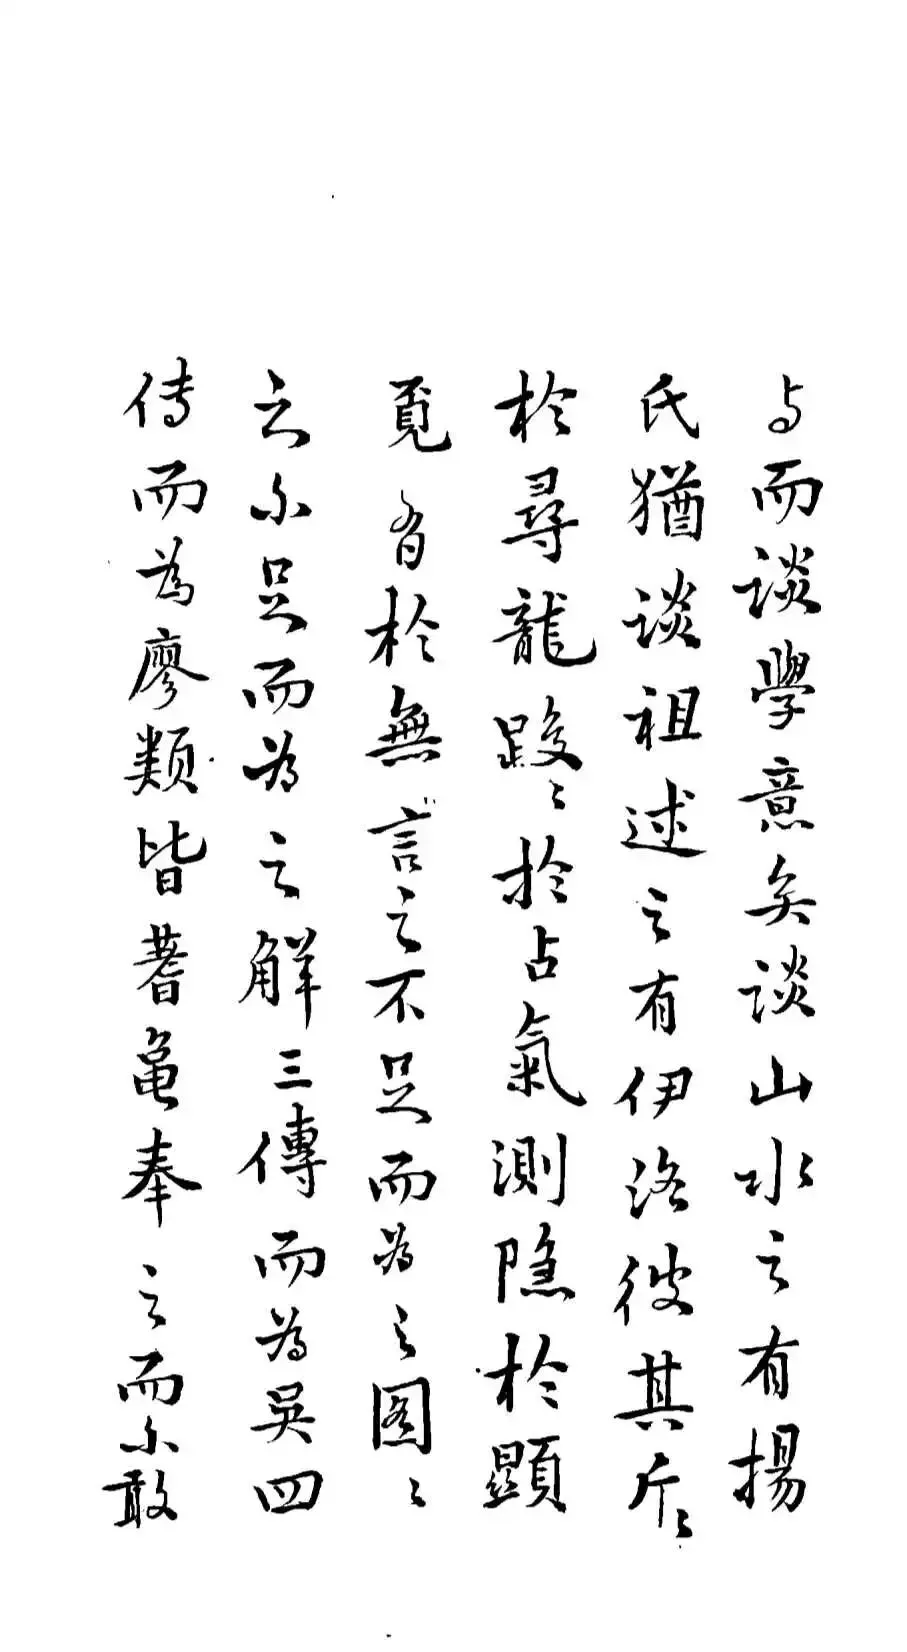 与而谈學意矣谈山水之有揚
氏猶谈祖述之有伊洛彼其斤〻
於尋龍踆〻於占氣測隐於顕
覔有於無言之不足而為之图〻
之不足而為之解三傳而為吳四
传而為廖類皆蓍亀奉之而不敢